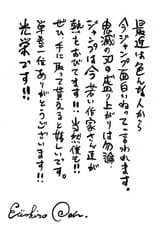 最近は色んな人から
今ジャンプ面白いねって言われます。
鬼滅の刃の盛り上がりは勿論、
ジャンプは今若い作家さん達が
熱をおびてます!! 当然僕も!!
ぜひ、手に取って貰えると嬉しいです。
栄誉一位ありがとうございます!!
光栄です!!
Eiichiro Oda.